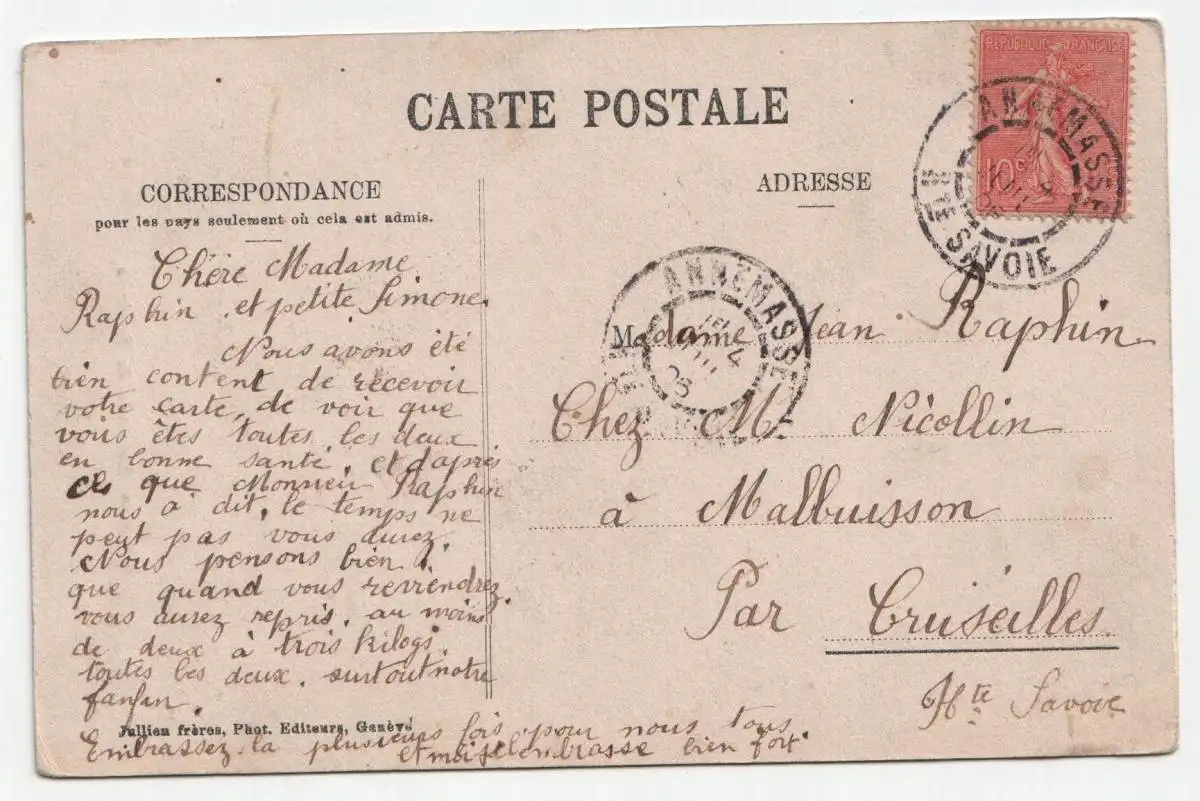 CARTE POSTALE
RÉPUBLIQUE FRANÇAISE
10c
ANNEMASSE
HTE SAVOIE
CORRESPONDANCE
pour les pays seulement où cela est admis.
ADRESSE
Chère Madame
Raphin, et petite Simone.
Nous avons été
bien content de recevoir
votre carte, de voir que
vous êtes toutes les deux
en bonne santé, et d'après
ce que Monsieur Raphin
nous a dit, le temps ne
peut pas vous durez.
Nous pensons bien
que quand vous reviendrez.
vous aurez repris, au moins
de deux à trois kilogs
toutes les deux. surtout notre
fanfan.
Embrassez-la plusieurs fois pour nous tous
et moi je l'embrasse bien fort.
Jullien frères, Phot. Editeurs, Genève
ANNEMASSE
Madame Jean Raphin
Chez M. Nicollin
à Malbuisson
Par Cruseilles
Hte Savoie